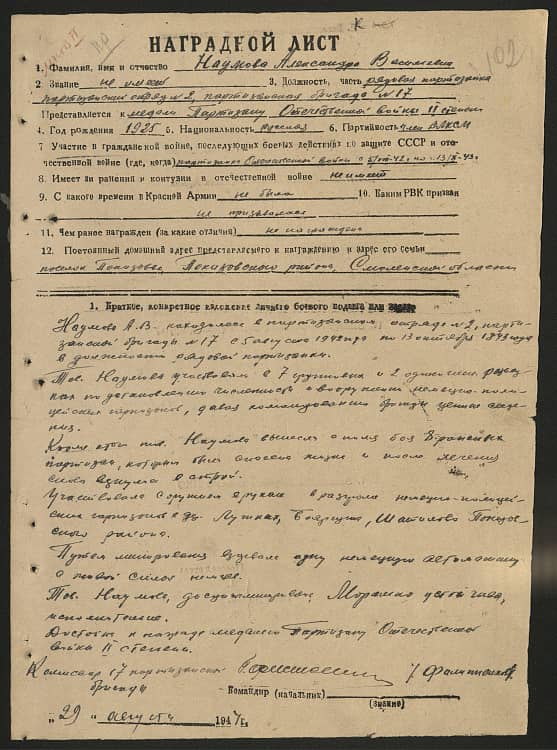 К
102
НАГРАДНОЙ ЛИСТ
1. Фамилия, имя и отчество Наумова Александра Васильевна
2. Звание не имеет 3. Должность, часть рядовая партизанка
партизанский отряд №2, партизанская бригада №17
Представляется к медали Партизану Отечественной войны II степени
4. Год рождения 1925 5. Национальность русская 6. Партийность член ВЛКСМ
7 Участие в гражданской войне, последующих боевых действиях по защите СССР и оте-
чественной войне (где, когда) партизанка Отечественной войны с
8. Имеет ли ранения и контузии в отечественной войне не имеет
9. С какого времени в Красной Армии не была 10. Каким РВК призван
не призывалась
11. Чем ранее награжден (за какие отличия) не награждена
12. Постоянный домашний адрес представляемого к награждению и адрес его семьи
поселок Понизовье, Понизовского района, Смоленской области
1. Краткое, конкретное изложение личного боевого подвига или
Наумова А.В. находилась в партизанском отряде №2, парти-
занской бригады №17 с 5 августа 1942 года по 13 октября 1943 года
в должности рядовой партизанки.
Тов. Наумова участвовала в 7 групповых и 2 одиночных развед-
ках по установлению численности и вооружения немецко-поли-
цейских гарнизонов, давая командованию бригады ценные сведе-
ния.
Кроме этого тов. Наумова вынесла с поля боя раненых
партизан, которым была спасена жизнь и после лечения
снова в строй.
Участвовала с оружием в руках в разгроме немецко-полицей-
ских гарнизонов в д. Лужках, Боярщина, Шатилово Понизов-
ского района.
Путем минирования взорвала одну немецкую автомашину
с живой силой немцев.
Тов. Наумова, дисциплинирована Морально устойчива,
исполнительна.
Достойна к награде медалью Партизану Отечественной
войны II степени.
Комиссар 17 партизанской
бригады
Командир (начальник)
(звание)
„29 „ август 1944 г.